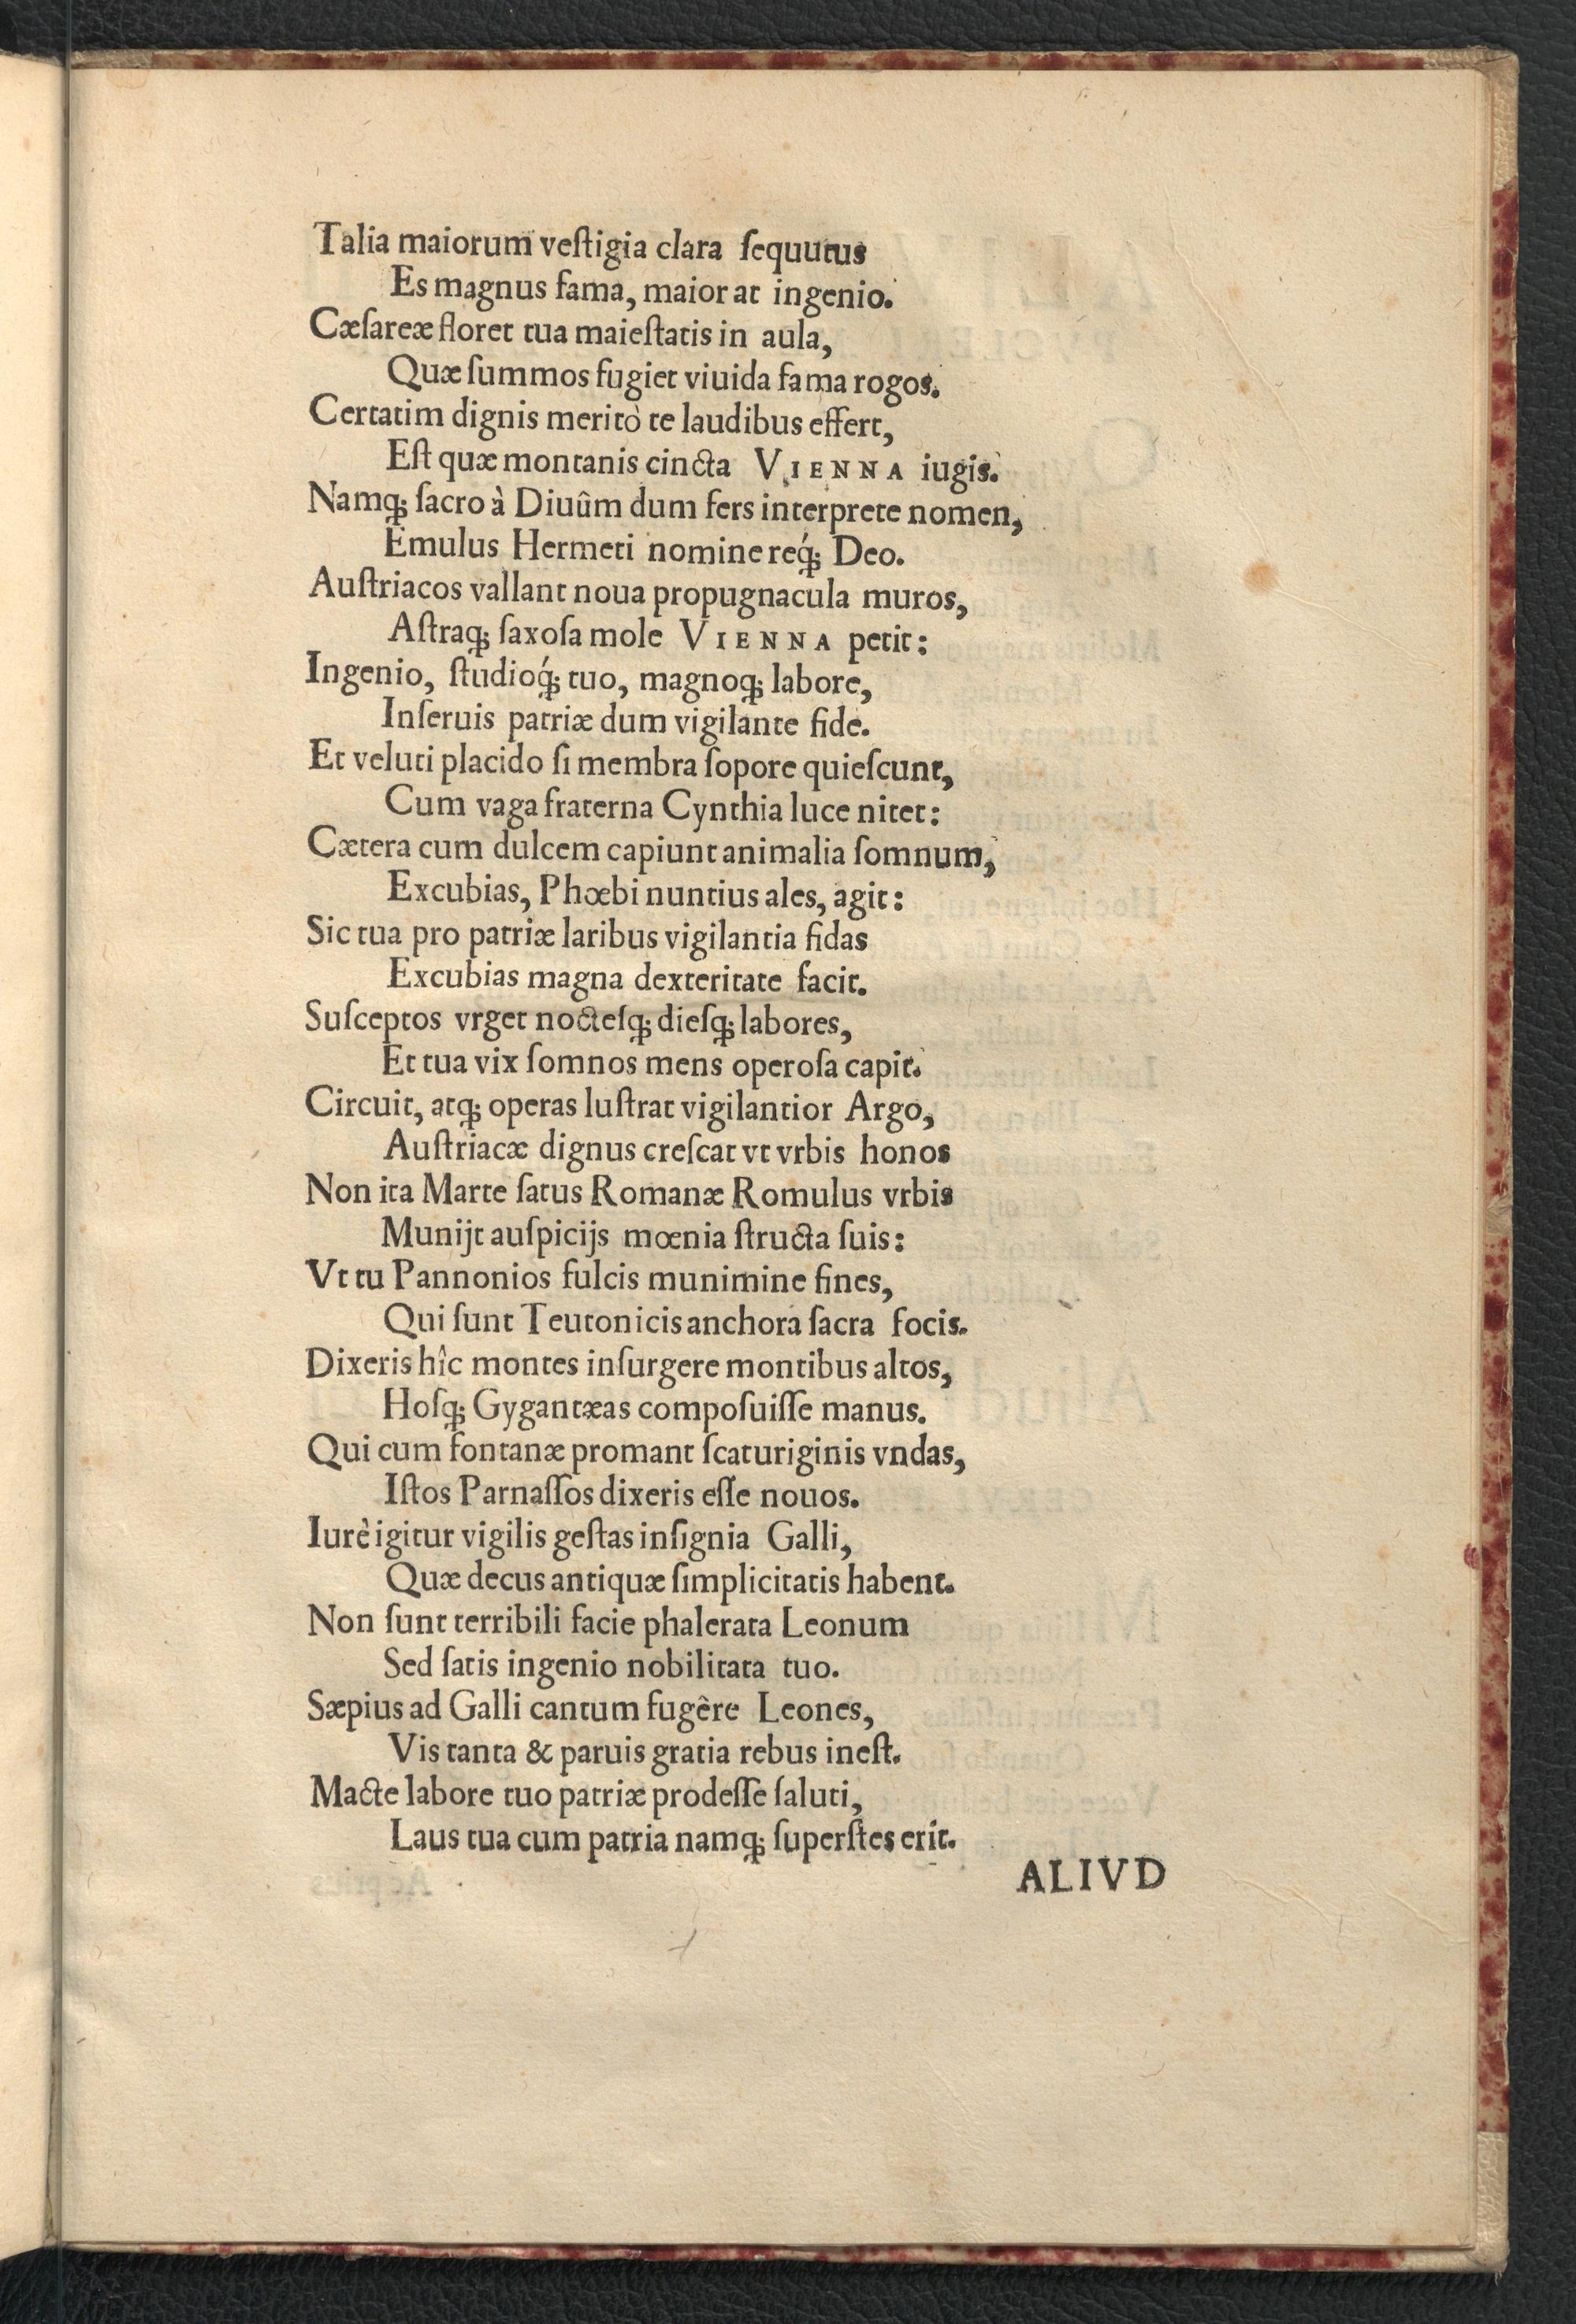 Talia maiorum veſtigia clara ſequutus
Es magnus fama, maior at ingenio.
Cæſareæ floret tua maieſtatis in aula,
Quæ ſummos fugiet viuida fama rogos.
Certatim dignis meritò te laudibus effert,
Eſt quæ montanis cincta VIENNA iugis.
Namq; ſacro à Diuûm dum fers interprete nomen,
Emulus Hermeti nomine req́; Deo.
Auſtriacos vallant noua propugnacula muros,
Aſtraq; ſaxoſa mole VIENNA petit:
Ingenio, ſtudioq́; tuo, magnoq; labore,
Inſeruis patriæ dum vigilante fide.
Et veluti placido ſi membra ſopore quieſcunt,
Cum vaga fraterna Cynthia luce nitet:
Cætera cum dulcem capiunt animalia ſomnum,
Excubias, Phœbi nuntius ales, agit:
Sic tua pro patriæ laribus vigilantia fidas
Excubias magna dexteritate facit.
Susceptos vrget nocteſq; dieſq; labores,
Et tua vix ſomnos mens operoſa capit.
Circuit, atq; operas luſtrat vigilantior Argo,
Auſtriacæ dignus creſcat vt vrbis honos
Non ita Marte ſatus Romanæ Romulus vrbis
Munijt auſpicijs mœnia ſtructa ſuis:
Vt tu Pannonios fulcis munimine fines,
Qui ſunt Teutonicis anchora ſacra focis.
Dixeris hîc montes inſurgere montibus altos,
Hoſq; Gygantæas compoſuiſſe manus.
Qui cum fontanæ promant ſcaturiginis vndas,
Iſtos Parnaſſos dixeris eſſe nouos.
Iurè igitur vigilis geſtas inſignia Galli,
Quæ decus antiquæ ſimplicitatis habent.
Non ſunt terribili facie phalerata Leonum
Sed ſatis ingenio nobilitata tuo.
Sæpius ad Galli cantum fugêre Leones,
Vis tanta & paruis gratia rebus ineſt.
Macte labore tuo patriæ prodeſſe ſaluti,
Laus tua cum patria namq; ſuperſtes erit.
ALIVD